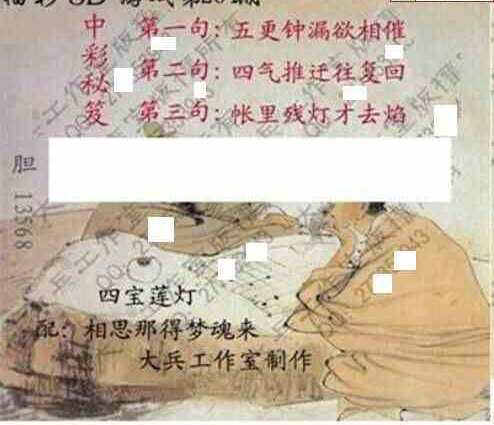 中彩秘笈
第一句：五更钟漏欲相催
第二句：四气推迁往复回
第三句：帐里残灯才去焰
胆 13568
四宝莲灯
配：相思那得梦魂来
大兵工作室制作